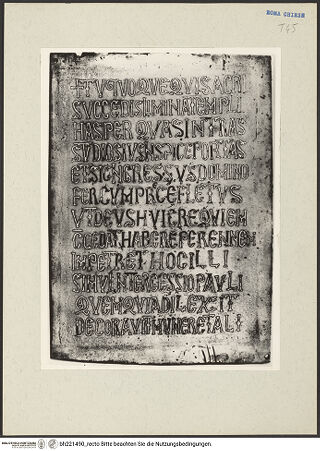 ROMA CHIESE
T45
+ TV QVOQVE QVI SACRI
SVCCEDIS LIMINA TEMPLI
HAS PER QVAS INTRAS
INSPICE PORTAS
ET SI INGRESSVS DOMINO
FER CVM PRECE FLETVS
VT DEVS HVIC REQVIEM
HABERE PERENNEM
IMPETRET HOC ILLI
SIMVL INTERCESSIO PAVLI
QVEM QVIA DILEXIT
DECORAVIT MVNERE TALI
bh221490_recto Bitte beachten Sie die Nutzungsbedingungen.